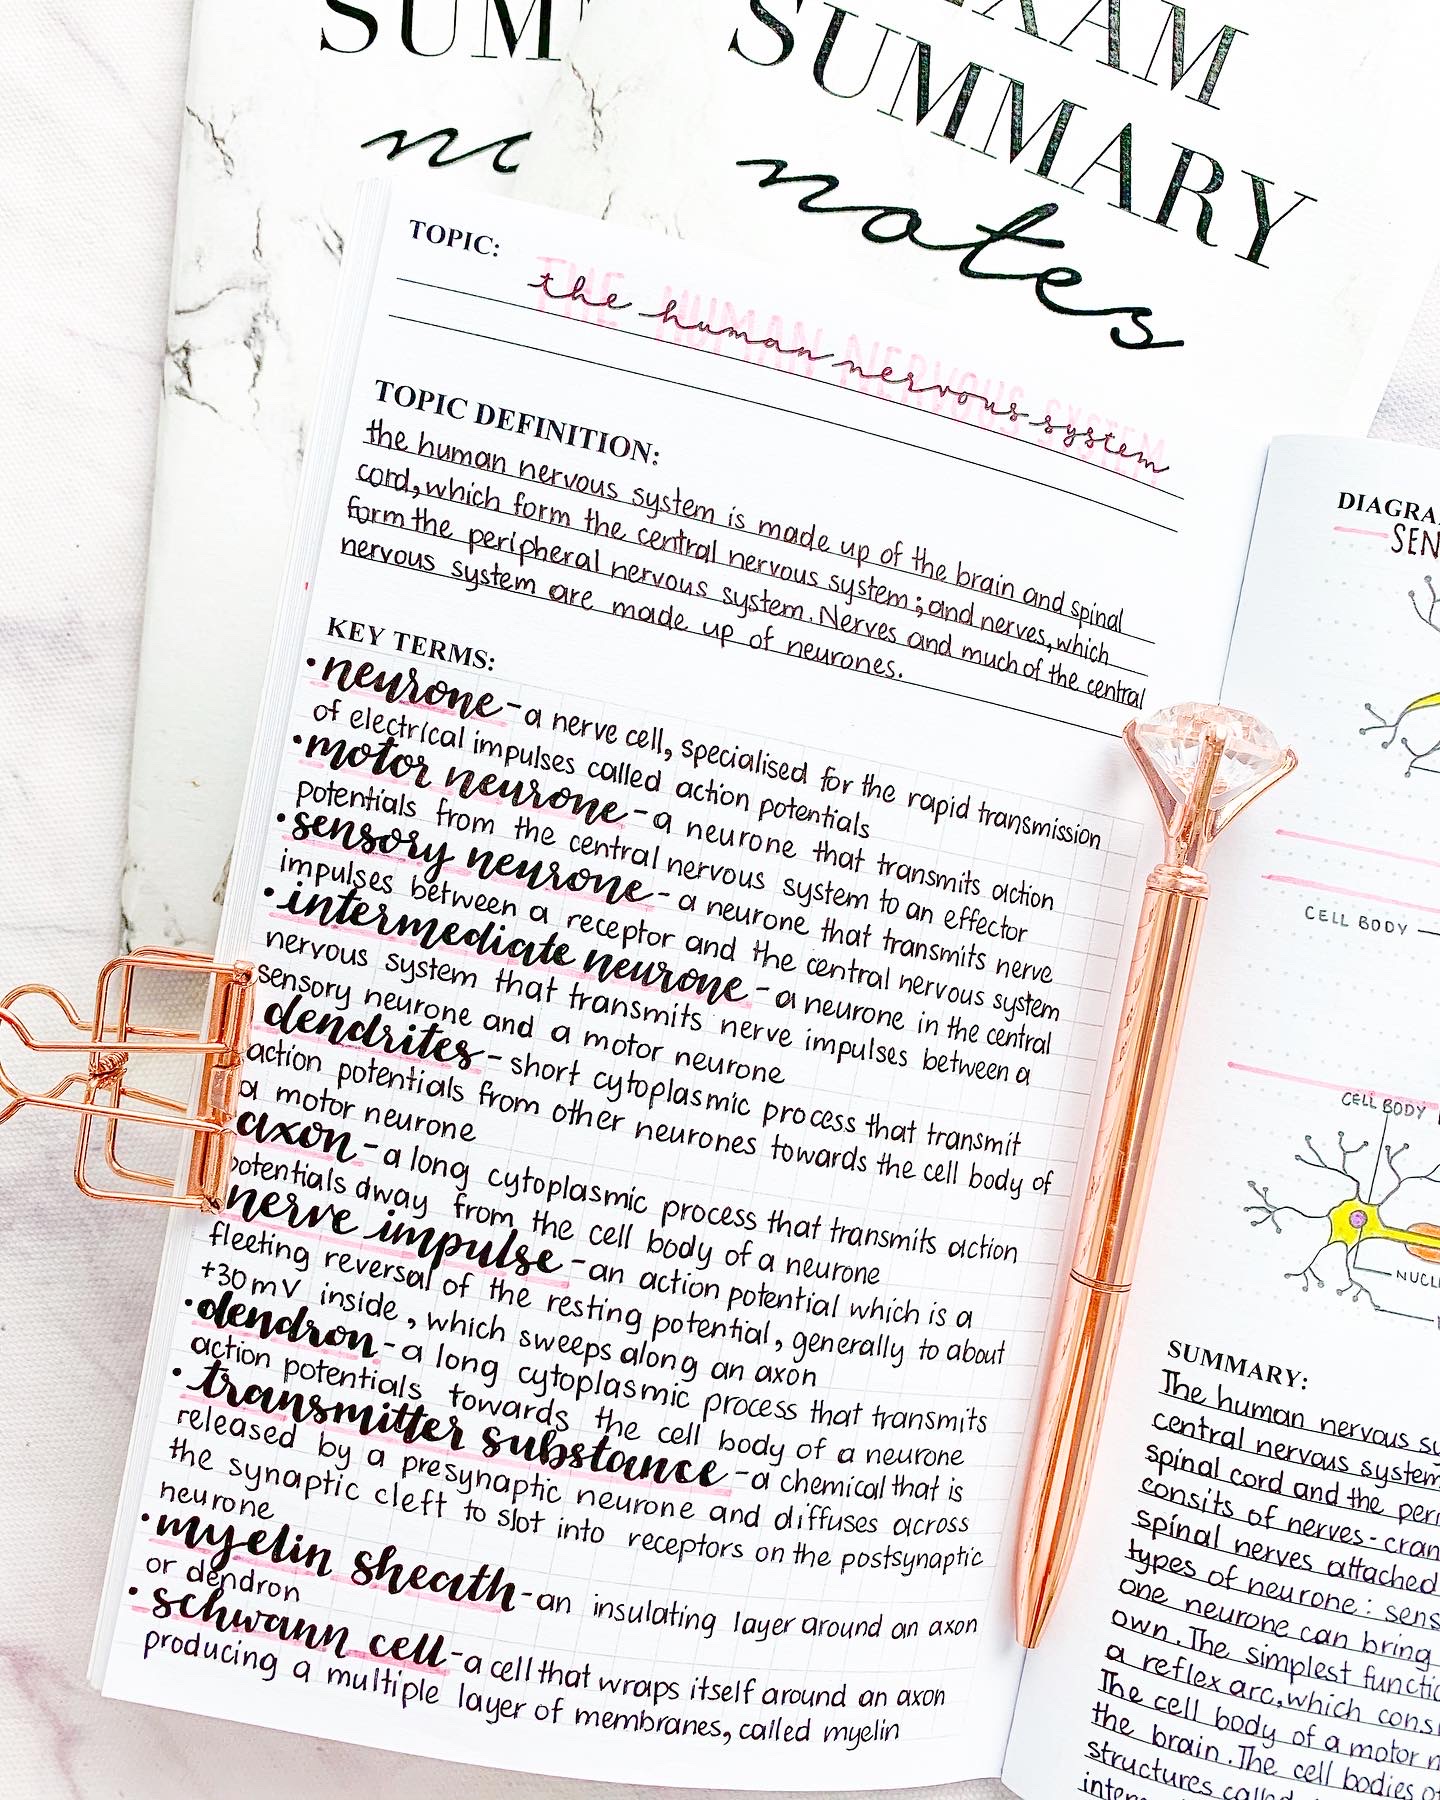 SUM
EXAM
SUMMARY
notes
TOPIC:
THE HUMAN NERVOUS SYSTEM
the human nervous system
TOPIC DEFINITION:
the human nervous system is made up of the brain and spinal
cord, which form the central nervous system; and nerves, which
form the peripheral nervous system. Nerves and much of the central
nervous system are made up of neurones.
KEY TERMS:
• neurone - a nerve cell, specialised for the rapid transmission
of electrical impulses called action potentials
• motor neurone - a neurone that transmits action
potentials from the central nervous system to an effector
• sensory neurone - a neurone that transmits nerve
impulses between a receptor and the central nervous system
• intermediate neurone - a neurone in the central
nervous system that transmits nerve impulses between a
sensory neurone and a motor neurone
dendrites - short cytoplasmic process that transmit
action potentials from other neurones towards the cell body of
a motor neurone
axon - a long cytoplasmic process that transmits action
potentials away from the cell body of a neurone
nerve impulse - an action potential which is a
fleeting reversal of the resting potential, generally to about
+30mV inside, which sweeps along an axon
• dendron - a long cytoplasmic process that transmits
action potentials towards the cell body of a neurone
• transmitter substance - a chemical that is
released by a presynaptic neurone and diffuses across
the synaptic cleft to slot into receptors on the postsynaptic
neurone
• myelin sheath - an insulating layer around an axon
or dendron
• schwann cell - a cell that wraps itself around an axon
producing a multiple layer of membranes, called myelin
DIAGRA
SEN
CELL BODY
CELL BODY
NUCL
SUMMARY:
The human nervous sy
central nervous system
spinal cord and the peri
consits of nerves - cran
spinal nerves attached
types of neurone: sens
one neurone can bring
own. The simplest functio
a reflex arc, which consi
The cell body of a motor n
the brain. The cell bodies of
structures called
inter